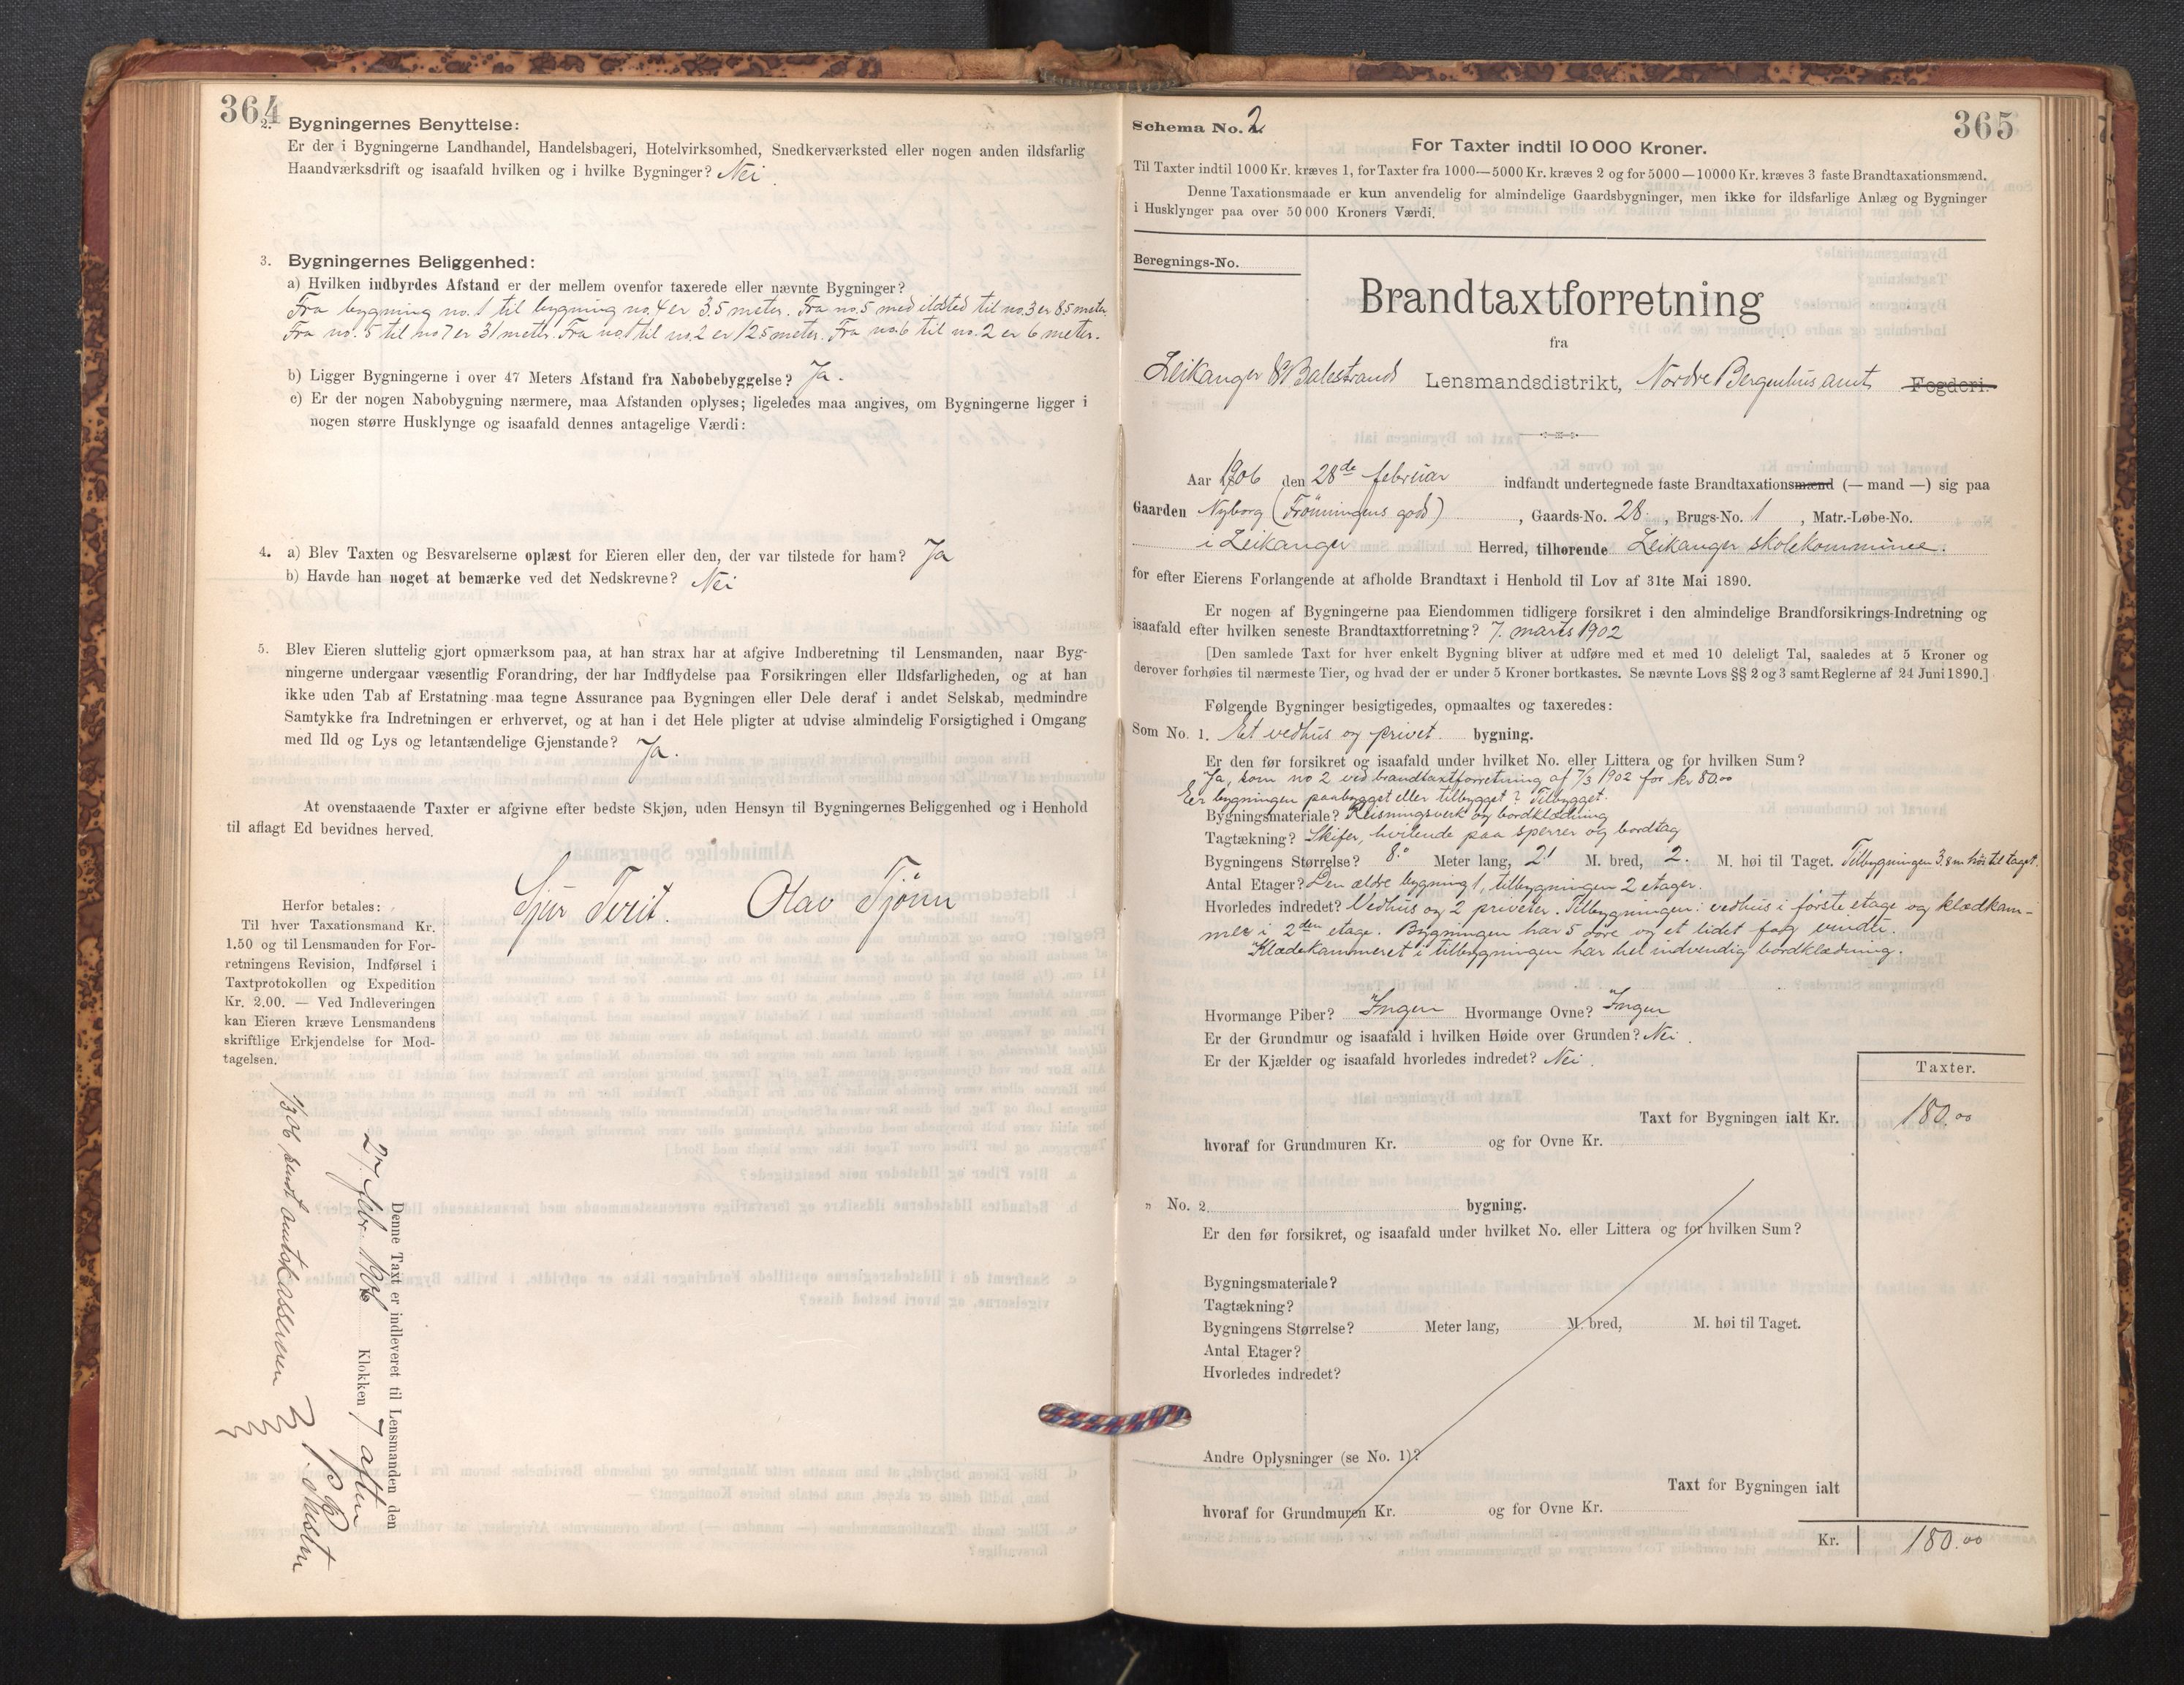 364
2. Bygningernes Benyttelse:
Er der i Bygningerne Landhandel, Handelsbageri, Hotelvirksomhed, Snedkerværksted eller nogen anden ildsfarlig
Haandværksdrift og isaafald hvilken og i hvilke Bygninger? Nei
3. Bygningernes Beliggenhed:
a) Hvilken indbyrdes Afstand er der mellem ovenfor taxerede eller nævnte Bygninger?
Fra bygning no. 1 til bygning no. 4 er 3.5 meter. Fra no. 5 med ildsted til no. 3 er 8.5 meter
Fra no. 5 til no 7 er 31 meter. Fra no. 1 til no. 2 er 12.5 meter. Fra no. 6 til no. 2 er 6 meter.
b) Ligger Bygningerne i over 47 Meters Afstand fra Nabobebyggelse? Ja.
c) Er der nogen Nabobygning nærmere, maa Afstanden oplyses; ligeledes maa angives, om Bygningerne ligger i
nogen større Husklynge og isaafald dennes antagelige Værdi:
4. a) Blev Taxten og Besvarelserne oplæst for Eieren eller den, der var tilstede for ham? Ja
b) Havde han noget at bemærke ved det Nedskrevne? Nei
5. Blev Eieren sluttelig gjort opmærksom paa, at han strax har at afgive Indberetning til Lensmanden, naar Byg-
ningerne undergaar væsentlig Forandring, der har Indflydelse paa Forsikringen eller Ildsfarligheden, og at han
ikke uden Tab af Erstatning maa tegne Assurance paa Bygningen eller Dele deraf i andet Selskab, medmindre
Samtykke fra Indretningen er erhvervet, og at han i det Hele pligter at udvise almindelig Forsigtighed i Omgang
med Ild og Lys og letantændelige Gjenstande? Ja.
At ovenstaaende Taxter er afgivne efter bedste Skjøn, uden Hensyn til Bygningernes Beliggenhed og i Henhold
til aflagt Ed bevidnes herved.
Sjur Tveit. Olav Tjönn
Herfor betales:
Til hver Taxationsmand Kr.
1.50 og til Lensmanden for For-
retningens Revision, Indførsel i
Taxtprotokollen og Expedition
Kr. 2.00. — Ved Indleveringen
kan Eieren kræve Lensmandens
skriftlige Erkjendelse for Mod-
tagelsen.
Denne Taxt er indleveret til Lensmanden den
27. febr. 1906 Klokken 7 aften
1/3 06 sendt amtskassereren
365
Schema No. 2.
For Taxter indtil 10 000 Kroner.
Til Taxter indtil 1000 Kr. kræves 1, for Taxter fra 1000—5000 Kr. kræves 2 og for 5000—10000 Kr. kræves 3 faste Brandtaxationsmænd.
Denne Taxationsmaade er kun anvendelig for almindelige Gaardsbygninger, men ikke for ildsfarlige Anlæg og Bygninger
i Husklynger paa over 50 000 Kroners Værdi.
Beregnings-No.
Brandtaxtforretning
fra
Leikanger & Balestrand Lensmandsdistrikt, Nordre Bergenhus amt Fogderi.
Aar 1906 den 28de februar indfandt undertegnede faste Brandtaxationsmænd (— mand —) sig paa
Gaarden Nyborg (Frönningens gods), Gaards-No. 28., Brugs-No. 1, Matr.-Løbe-No.
i Leikanger Herred, tilhørende Leikanger skolekommune.
for efter Eierens Forlangende at afholde Brandtaxt i Henhold til Lov af 31te Mai 1890.
Er nogen af Bygningerne paa Eiendommen tidligere forsikret i den almindelige Brandforsikrings-Indretning og
isaafald efter hvilken seneste Brandtaxtforretning? 7. marts 1902
[Den samlede Taxt for hver enkelt Bygning bliver at udføre med et med 10 deleligt Tal, saaledes at 5 Kroner og
derover forhøies til nærmeste Tier, og hvad der er under 5 Kroner bortkastes. Se nævnte Lovs §§ 2 og 3 samt Reglerne af 24 Juni 1890.]
Følgende Bygninger besigtigedes, opmaaltes og taxeredes:
Som No. 1. Et vedhus og privet bygning.
Er den før forsikret og isaafald under hvilket No. eller Littera og for hvilken Sum?
Ja, som no 2 ved brandtaxtforretning af 7/3 1902 for kr 80.00
Er bygningen paabygget eller tilbygget? Tilbygget.
Bygningsmateriale? Reisningsverk og bordklædning
Tagtækning? Skifer, hvilende paa sperrer og bordtag
Bygningens Størrelse? 8.0 Meter lang, 2.1 M. bred, 2. M. høi til Taget. Tilbygningen 3.8 m høi til taget.
Antal Etager? Den ældre bygning 1, tilbygningen 2 etager.
Hvorledes indredet? Vedhus og 2 priveter. Tilbygningen: vedhus i første etage og klædkam-
mer i 2den etage. Bygningen har 5 døre og et lidet fag vindu.
Klædekammeret i tilbygningen har hel indvendig bordklædning.
Hvormange Piber? Ingen Hvormange Ovne? Ingen
Er der Grundmur og isaafald i hvilken Høide over Grunden? Nei.
Er der Kjælder og isaafald hvorledes indredet? Nei.
Taxter.
Taxt for Bygningen ialt Kr. 180.00
hvoraf for Grundmuren Kr. og for Ovne Kr.
" No. 2. bygning.
Er den før forsikret, og isaafald under hvilket No. eller Littera og for hvilken Sum?
Bygningsmateriale?
Tagtækning?
Bygningens Størrelse? Meter lang, M. bred, M. høi til Taget.
Antal Etager?
Hvorledes indredet?
Andre Oplysninger (se No. 1)?
Taxt for Bygningen ialt
hvoraf for Grundmuren Kr. og for Ovne Kr.
Kr. 180.00